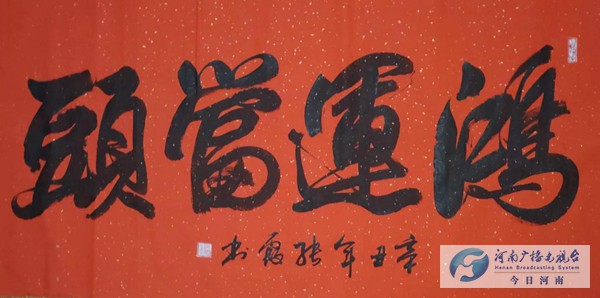 鴻運當頭
辛丑年张书
河南广播电视台
Henan Broadcasting System
今日河南